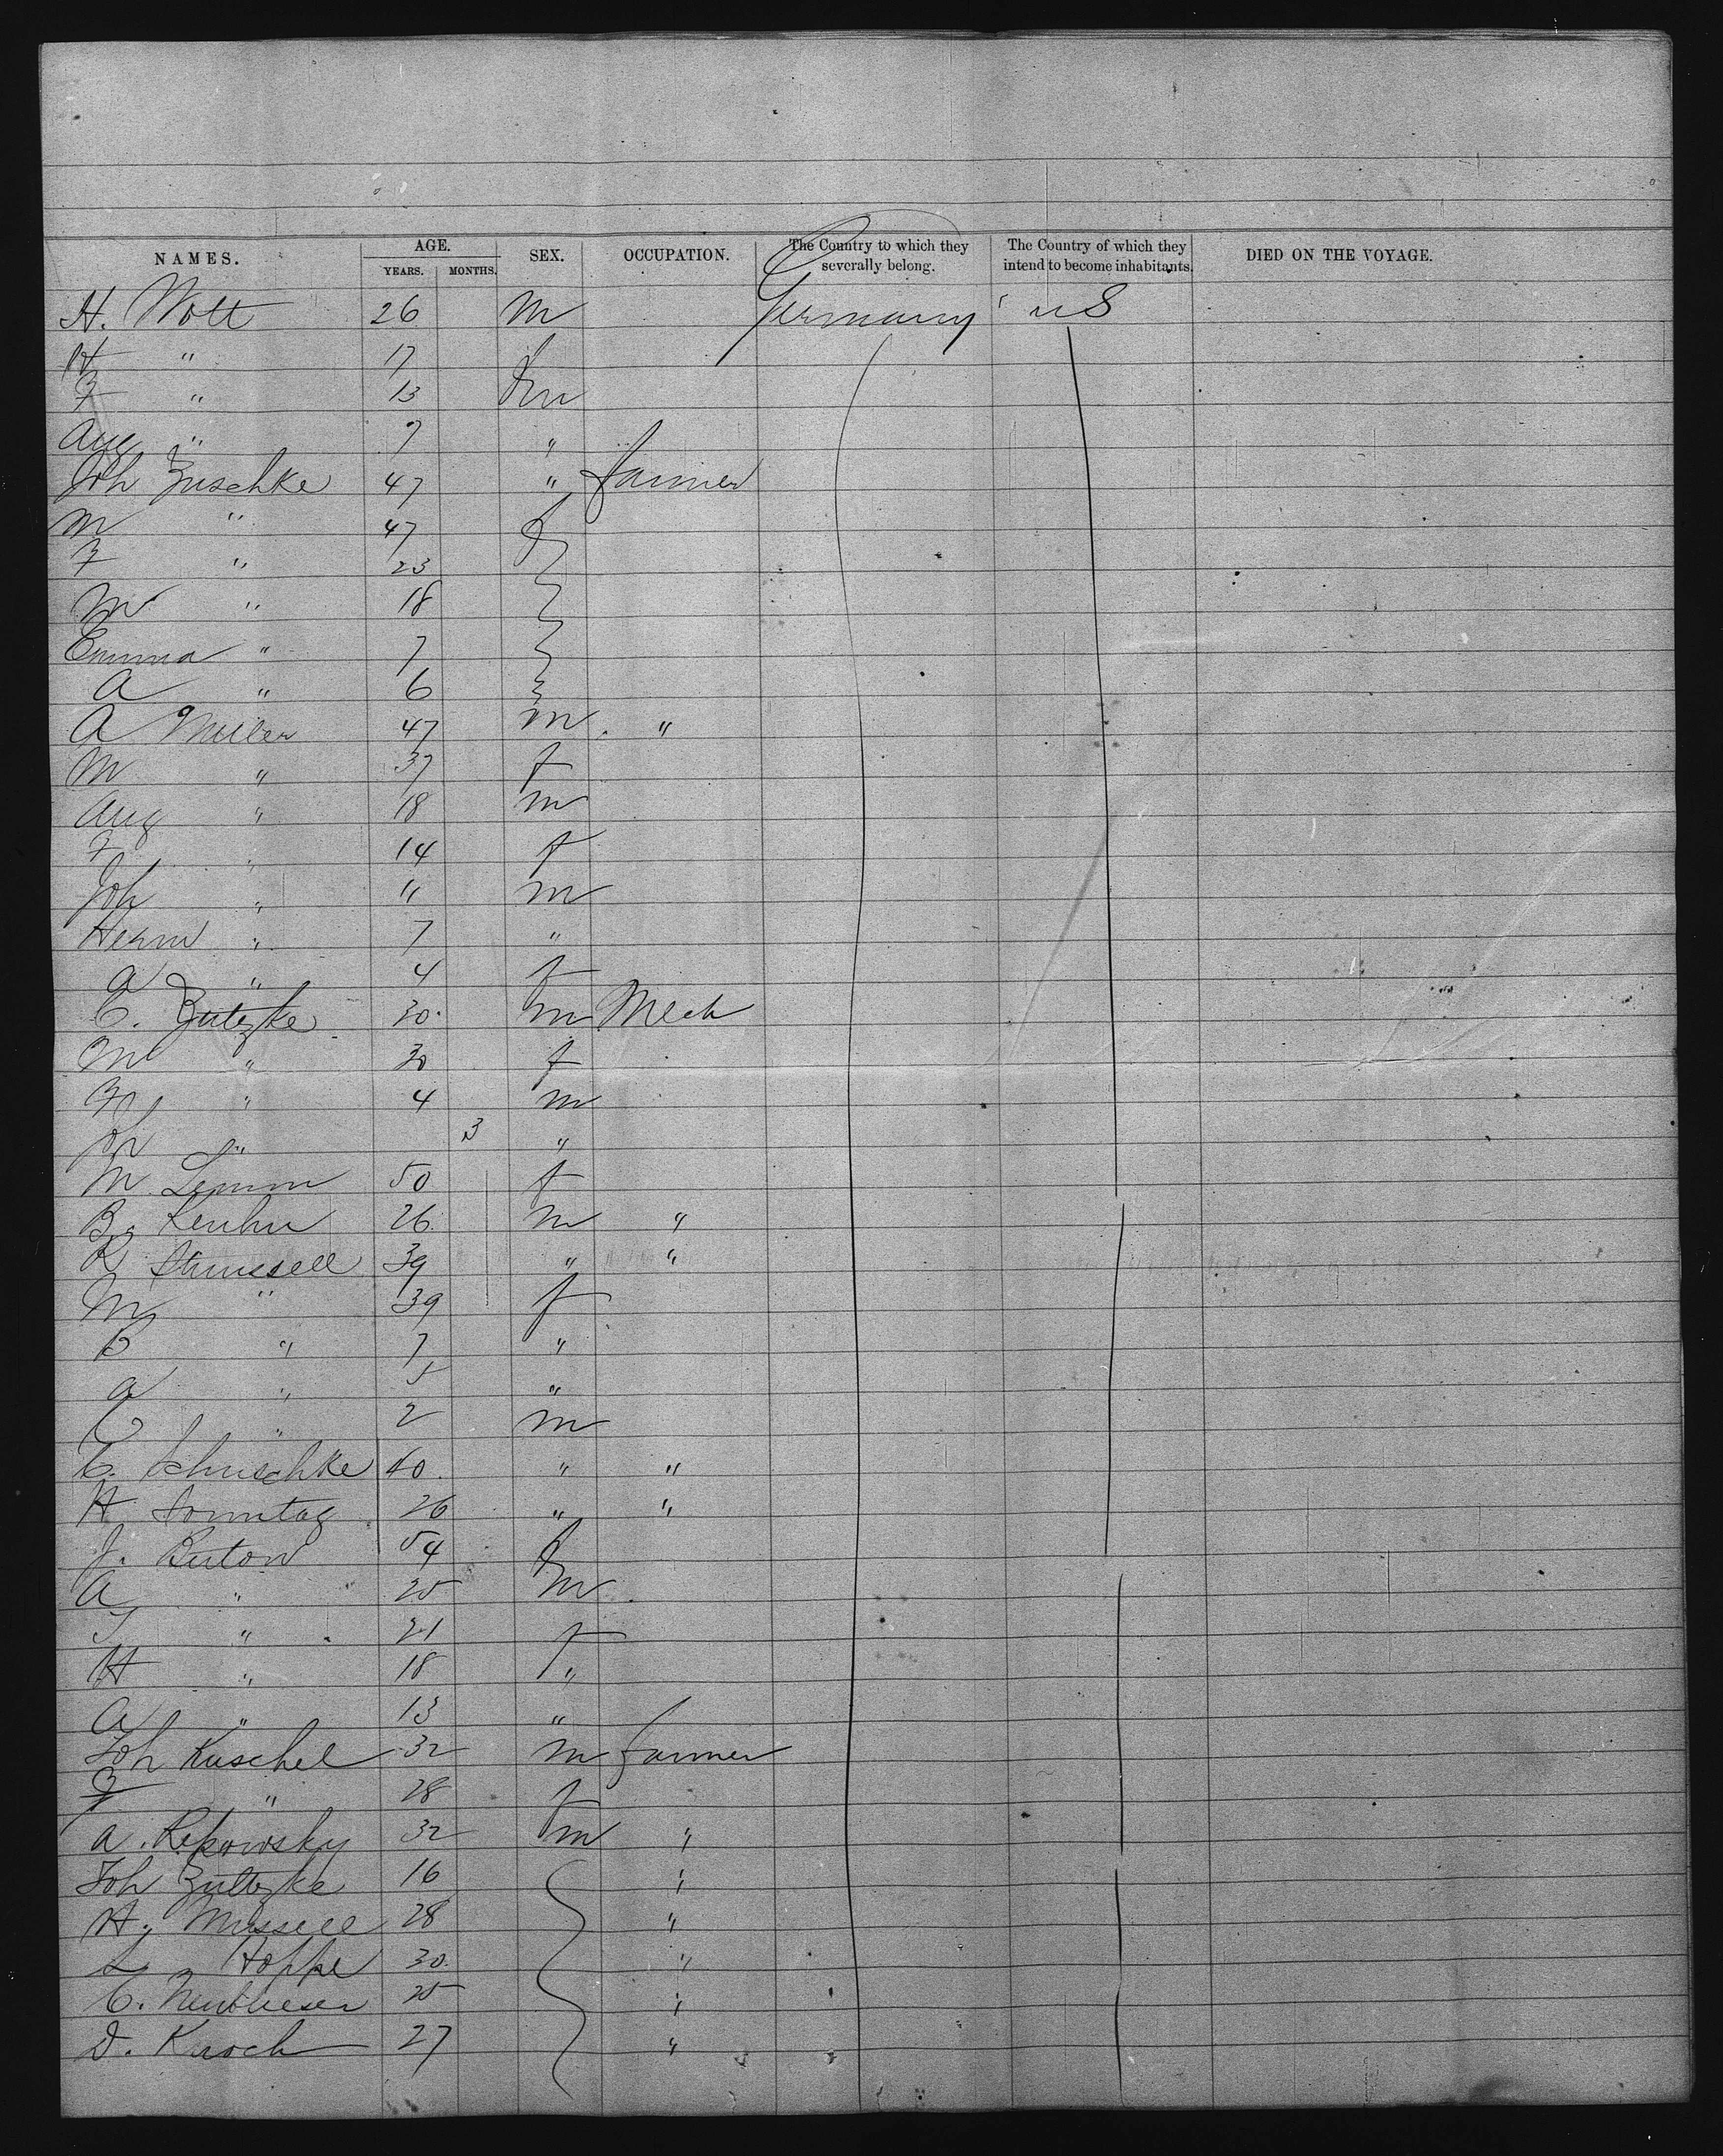 NAMES. AGE. YEARS. MONTHS. SEX. OCCUPATION. The Country to which they severally belong. The Country of which they intend to become inhabitants. DIED ON THE VOYAGE.
H. Wott 26 m Germany US
H " 17 f
F " 13 m
Aug " 7 "
Joh Zuschke 47 " farmer
M " 47 f
F " 23
M " 18
Emma " 7
A " 6
A Muller 47 m "
M " 37 f
Aug " 18 m
F " 14 f
Joh " 11 m
Herm " 7 "
A " 4 f
C. Zutzke 30 m Mech
M " 30 f
" 4 m
" 3 "
M Lemm 50 f
B. Keuhn 26 m "
R 39 " "
M " 39 f
B " 7 "
a " 5 "
C " 2 m
C. Schuschke 40 " "
H. Sonntag 26 " "
J. Butow 54 f
A " 25 m
" 21 f
H " 18 "
A " 13 "
Joh Kuschel 32 m farmer
F " 28 f
A. Rekowsky 32 m "
Joh Zultzke 16 "
H. Mussell 28 "
L Hoppe 30 "
C. 25 "
D. Knoch 27 "